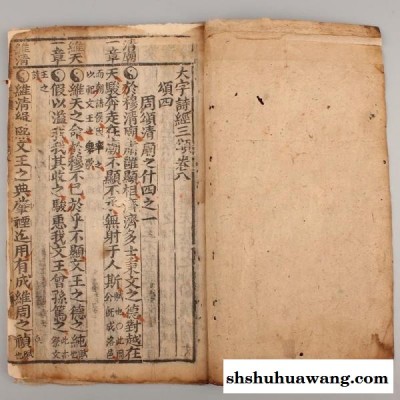 大字詩經三頌卷八
頌四
周頌清廟之什四之一
清廟
於穆清廟肅雝顯相濟濟多士秉文之德對越在
一章
天駿奔走在廟不顯不承無射于人斯
維天
維天之命於穆不已於乎不顯文王之德之純
二章
假以溢我我其收之駿惠我文王曾孫篤之
維清
維清緝熙文王之典肇禋迄用有成維周之禎
shshuhuawang.com